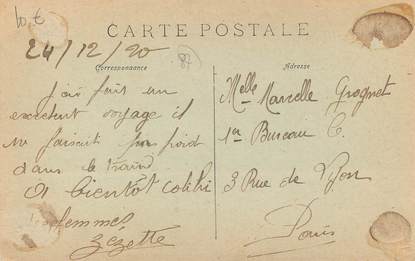 10 €
CARTE POSTALE
24/12/20
87
Correspondance
Adresse
j'ai fait un
excelent voyage il
ne faisait pas froid
dans le train
A bientôt
femmes
Zézette
Melle Marcelle Grognet
1er Bureau C.
3 Rue de
Paris